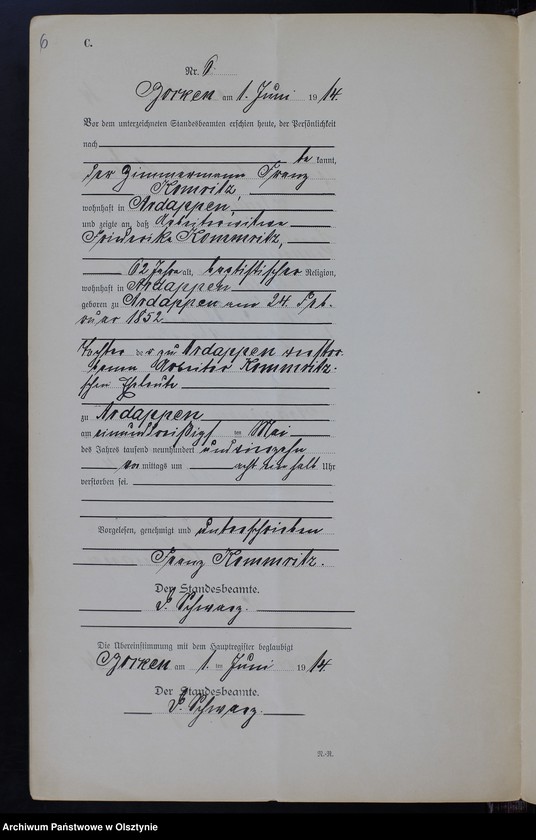 6
C.
Nr. 6.
Borken am 1. Juni 1914.
Vor dem unterzeichneten Standesbeamten erschien heute, der Persönlichkeit
nach
be kannt,
der Zimmermann Franz
Komritz,
wohnhaft in Ardappen,
und zeigte an, daß
Friederike Kommritz,
62 Jahre alt, baptistischer Religion,
wohnhaft in Ardappen
geboren zu Ardappen am 24. Feb-
ruar 1852
Tochter der zu Ardappen verstor-
benen Arbeiter Kommritz-
schen Eheleute
zu Ardappen
am einunddreißigsten Mai
des Jahres tausend neunhundert und vierzehn
vor mittags um acht einhalb Uhr
verstorben sei.
Vorgelesen, genehmigt und unterschrieben
Franz Kommritz.
Der Standesbeamte.
Schwarz.
Die Übereinstimmung mit dem Hauptregister beglaubigt
Borken am 1. ten Juni 1914.
Der Standesbeamte.
Schwarz.
N.-R.
Archiwum Państwowe w Olsztynie